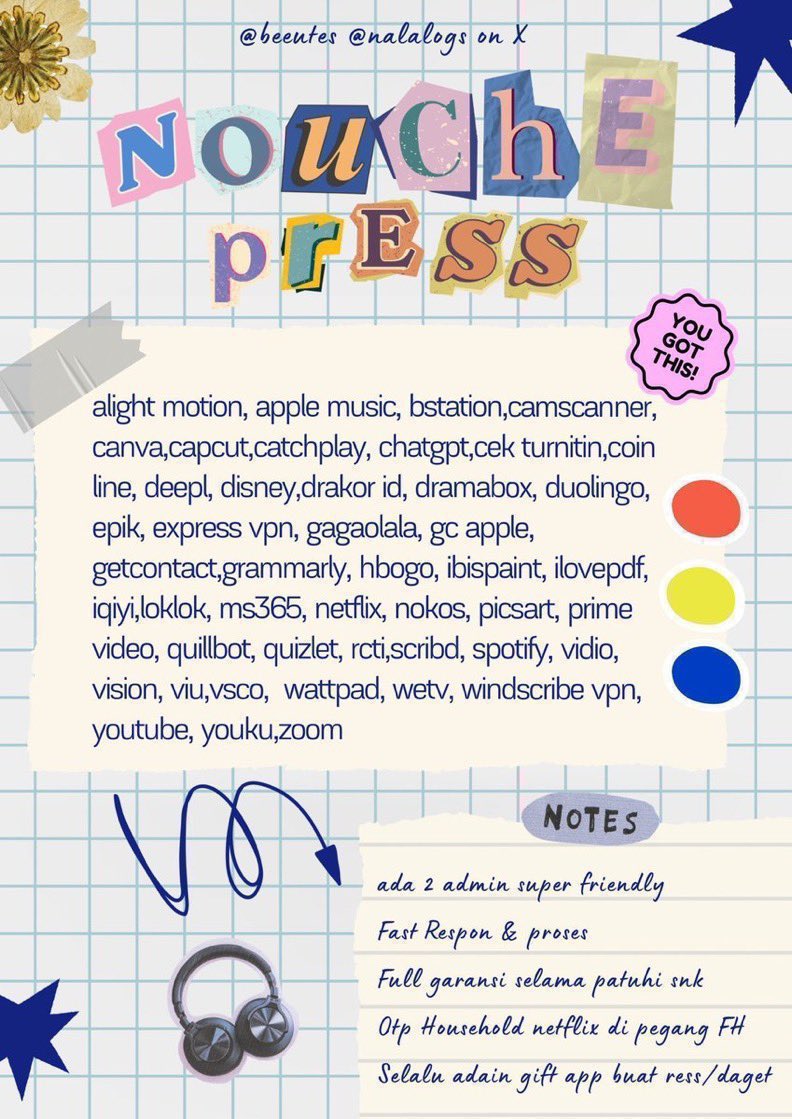 @beeutes @nalalogs on X
NOUCHE
PRESS
YOU
GOT
THIS!
alight motion, apple music, bstation,camscanner,
canva,capcut,catchplay, chatgpt,cek turnitin,coin
line, deepl, disney,drakor id, dramabox, duolingo,
epik, express vpn, gagaolala, gc apple,
getcontact,grammarly, hbogo, ibispaint, ilovepdf,
iqiyi,loklok, ms365, netflix, nokos, picsart, prime
video, quillbot, quizlet, rcti,scribd, spotify, vidio,
vision, viu,vsco,  wattpad, wetv, windscribe vpn,
youtube, youku,zoom
NOTES
ada 2 admin super friendly
Fast Respon & proses
Full garansi selama patuhi snk
Otp Household netflix di pegang FH
Selalu adain gift app buat ress/daget